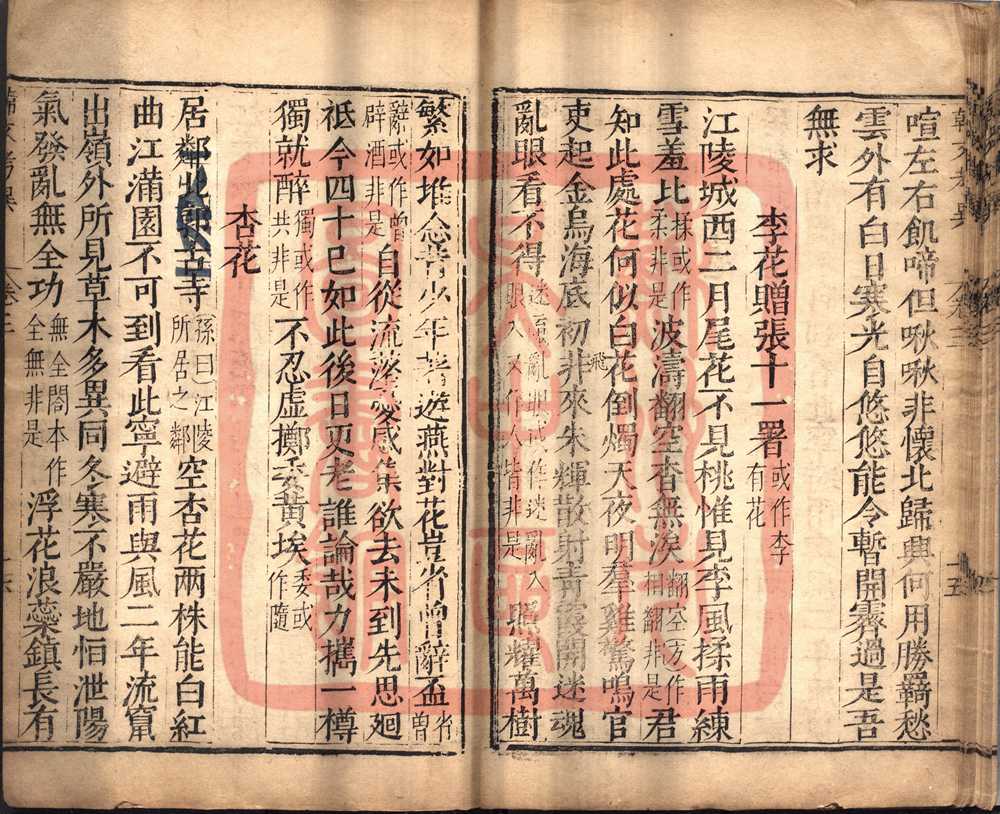 喧左右飢啼但啾啾非懷北歸興何用勝羈愁
雲外有白日寒光自悠悠能令暫開霽過是吾
無求
李花贈張十一署或作李有花
江陵城西二月尾花不見桃惟見李風揉雨練
雪羞比揉或作柔非是波濤翻空杳無涘翻空方作相翻非是君
知此處花何似白花倒燭天夜明羣雞驚鳴官
吏起金烏海底初非飛來朱輝散射青霞開迷魂
亂眼看不得照耀萬樹
繁如堆念昔少年著遊燕對花豈省曾辭盃省曾
辭或作曾辟酒非是自從流落憂感集欲去未到先思廻
秪今四十已如此後日更老誰論哉力攜一樽
獨就醉獨或作共非是不忍虛擲委黃埃委或作隨
杏花
居鄰北郭古寺孫曰江陵所居之鄰空杏花兩株能白紅
曲江滿園不可到看此寧避雨與風二年流竄
出嶺外所見草木多異同冬寒不嚴地恒泄陽
氣發亂無全功無全閣本作全無非是浮花浪蘂鎮長有